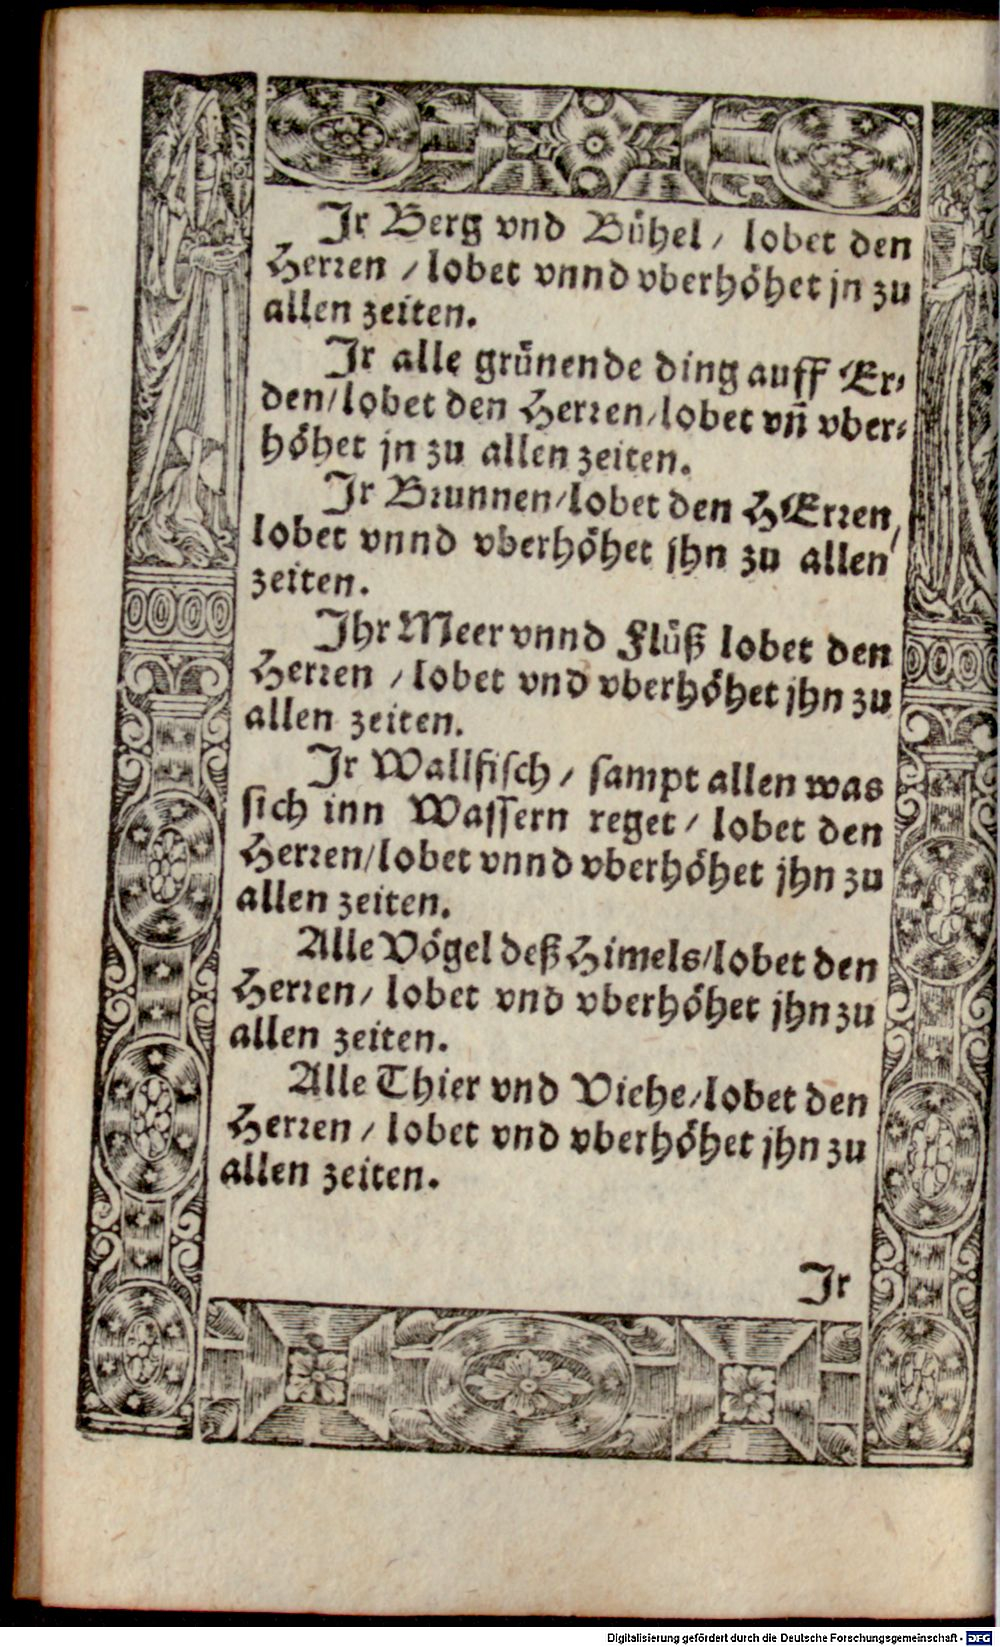 Jr Berg vnd Bühel / lobet den
Herren / lobet vnnd vberhöhet jn zu
allen zeiten.
Jr alle grünende ding auff Er-
den/lobet den Herren/lobet vñ vber-
höhet jn zu allen zeiten.
Jr Brunnen/lobet den HErren/
lobet vnnd vberhöhet jhn zu allen
zeiten.
Jhr Meer vnnd Flüß lobet den
Herren / lobet vnd vberhöhet jhn zu
allen zeiten.
Jr Wallfisch / sampt allen was
sich inn Wassern reget / lobet den
Herren/lobet vnnd vberhöhet jhn zu
allen zeiten.
Alle Vögel deß Himels/lobet den
Herren/ lobet vnd vberhöhet jhn zu
allen zeiten.
Alle Thier vnd Viehe/lobet den
Herren / lobet vnd vberhöhet jhn zu
allen zeiten.
Jr
Digitalisierung gefördert durch die Deutsche Forschungsgemeinschaft - DFG